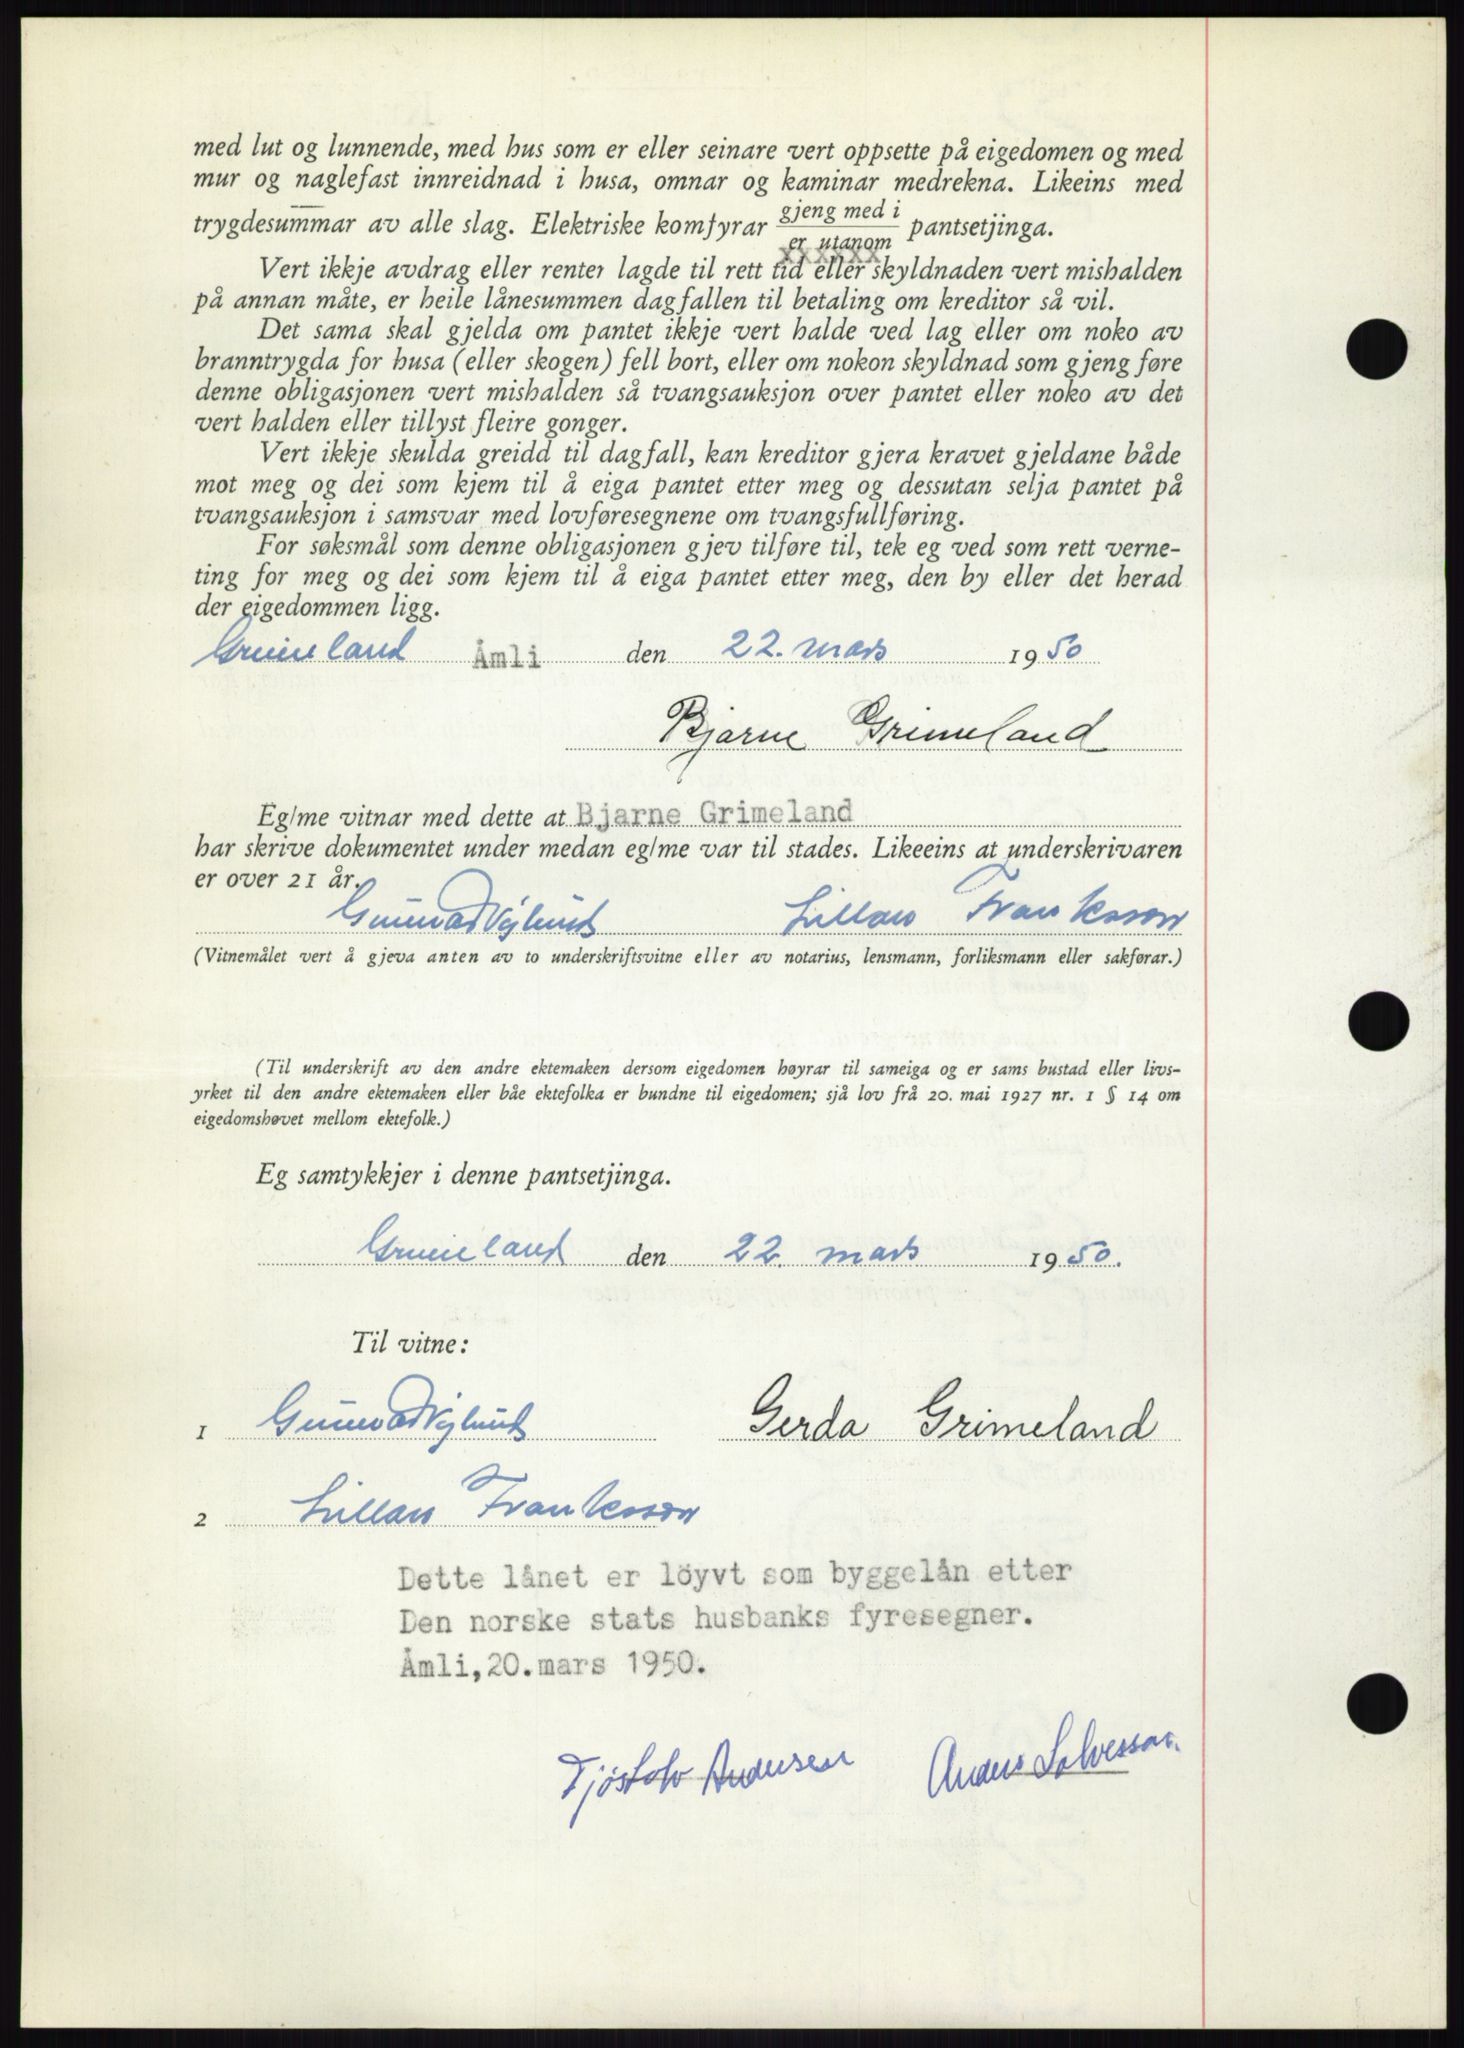 med lut og lunnende, med hus som er eller seinare vert oppsette på eigedomen og med
mur og naglefast innreidnad i husa, omnar og kaminar medrekna. Likeins med
trygdesummar av alle slag. Elektriske komfyrar gjeng med i / er utanom pantsetjinga.
xxxxxx
Vert ikkje avdrag eller renter lagde til rett tid eller skyldnaden vert mishalden
på annan måte, er heile lånesummen dagfallen til betaling om kreditor så vil.
Det sama skal gjelda om pantet ikkje vert halde ved lag eller om noko av
branntrygda for husa (eller skogen) fell bort, eller om nokon skyldnad som gjeng føre
denne obligasjonen vert mishalden så tvangsauksjon over pantet eller noko av det
vert halden eller tillyst fleire gonger.
Vert ikkje skulda greidd til dagfall, kan kreditor gjera kravet gjeldane både
mot meg og dei som kjem til å eiga pantet etter meg og dessutan selja pantet på
tvangsauksjon i samsvar med lovføresegnene om tvangsfullføring.
For søksmål som denne obligasjonen gjev tilføre til, tek eg ved som rett verne-
ting for meg og dei som kjem til å eiga pantet etter meg, den by eller det herad
der eigedommen ligg.
Grimeland Åmli den 22. mars 1950
Bjarne Grimeland
Eg/me vitnar med dette at Bjarne Grimeland
har skrive dokumentet under medan eg/me var til stades. Likeeins at underskrivaren
er over 21 år.
(Vitnemålet vert å gjeva anten av to underskriftsvitne eller av notarius, lensmann, forliksmann eller sakførar.)
(Til underskrift av den andre ektemaken dersom eigedomen høyrar til sameiga og er sams bustad eller livs-
yrket til den andre ektemaken eller båe ektefolka er bundne til eigedomen; sjå lov frå 20. mai 1927 nr. 1 § 14 om
eigedomshøvet mellom ektefolk.)
Eg samtykkjer i denne pantsetjinga.
Grimeland den 22. mars 1950.
Til vitne:
1 Gerda Grimeland
2
Dette lånet er löyvt som byggelån etter
Den norske stats husbanks fyresegner.
Åmli,20.mars 1950.
Tjøstolv Andersen